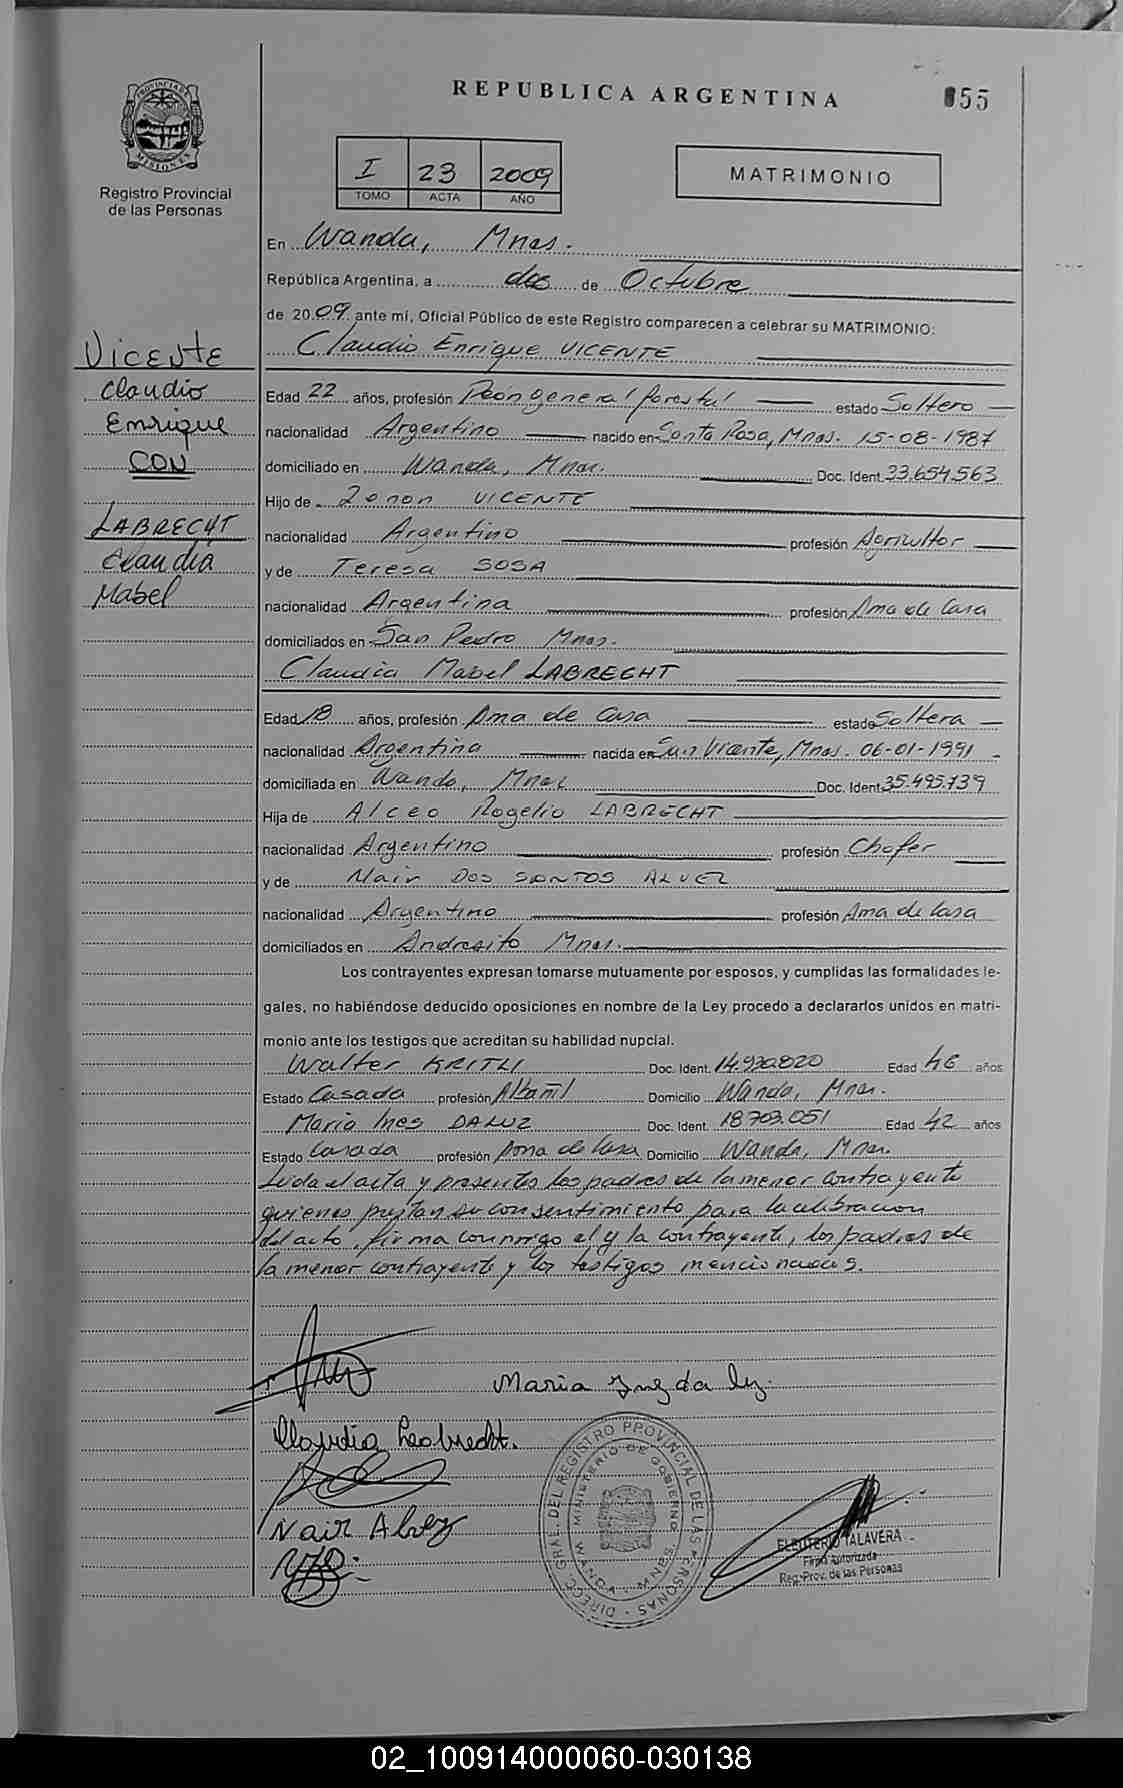 REPUBLICA ARGENTINA
055
PROVINCIA DE MISIONES
Registro Provincial
de las Personas
I 23 2009
TOMO ACTA AÑO
MATRIMONIO
En Wanda, Mnes.
República Argentina, a dos de Octubre
de 2009 ante mí, Oficial Público de este Registro comparecen a celebrar su MATRIMONIO:
Claudio Enrique VICENTE
Vicente
Claudio
Enrique
CON
LABRECHT
Claudia
Mabel
Edad 22 años, profesión Peón general forestal estado Soltero
nacionalidad Argentino nacido en Santa Rosa, Mnes. 15-08-1987
domiciliado en Wanda, Mnes. Doc. Ident. 33.654.563
Hijo de Zenon VICENTE
nacionalidad Argentino profesión Agricultor
y de Teresa SOSA
nacionalidad Argentina profesión Ama de Casa
domiciliados en San Pedro Mnes.
Claudia Mabel LABRECHT
Edad 18 años, profesión Ama de Casa estado Soltera
nacionalidad Argentina nacida en San Vicente, Mnes. 06-01-1991
domiciliada en Wanda, Mnes Doc. Ident. 35.495.739
Hija de Alceo Rogelio LABRECHT
nacionalidad Argentino profesión Chofer
y de Nair DOS SANTOS ALVEZ
nacionalidad Argentino profesión Ama de Casa
domiciliados en Andresito Mnes.
Los contrayentes expresan tomarse mutuamente por esposos, y cumplidas las formalidades le-
gales, no habiéndose deducido oposiciones en nombre de la Ley procedo a declararlos unidos en matri-
monio ante los testigos que acreditan su habilidad nupcial.
Walter Doc. Ident. 14.930.820 Edad 46 años
Estado Casada profesión Albañil Domicilio Wanda, Mnes.
Maria Ines DA LUZ Doc. Ident. 18.703.051 Edad 42 años
Estado Casada profesión Ama de Casa Domicilio Wanda, Mnes.
Leida el acta y presentes los padres de la menor contrayente
quienes prestan su consentimiento para la celebracion
del acto, firma conmigo el y la contrayente, los padres de
la menor contrayente y los testigos mencionados.
Maria Inez da luz.
Claudia Labrecht.
Nair Alvez
DIREC. GRAL. DEL REGISTRO PROVINCIAL DE LAS PERSONAS
MINISTERIO DE GOBIERNO
WANDA - MNES.
ELEUTERIO TALAVERA
Firma Autorizada
Reg. Prov. de las Personas
02_100914000060-030138